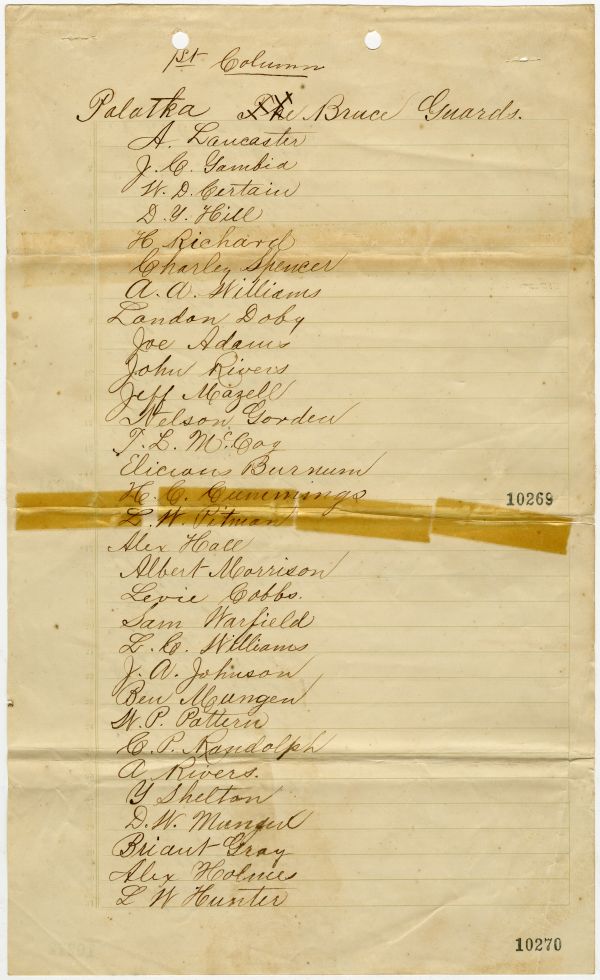 1st Column
Palatka The Bruce Guards.
A. Lancaster
J. C. Gambia
W. D. Certain
D. Y. Hill
H Richard
Charley Spencer
A. A. Williams
Landon Doby
Joe Adams
John Rivers
Jeff Mazell
Nelson Gorden
T. L. McCoy
Elicious Burnum
H. C. Cummings
10269
L. W. Pitman
Alex Hall
Albert Morrison
Levie Cobbs.
Sam Warfield
L. C. Williams
J. A. Johnson
Ben Mungen
W. P. Pattern
C. P. Randolph
A Rivers.
Y Shelton
D. W. Mungul
Briant Gray
Alex Holmes
L W Hunter
10270